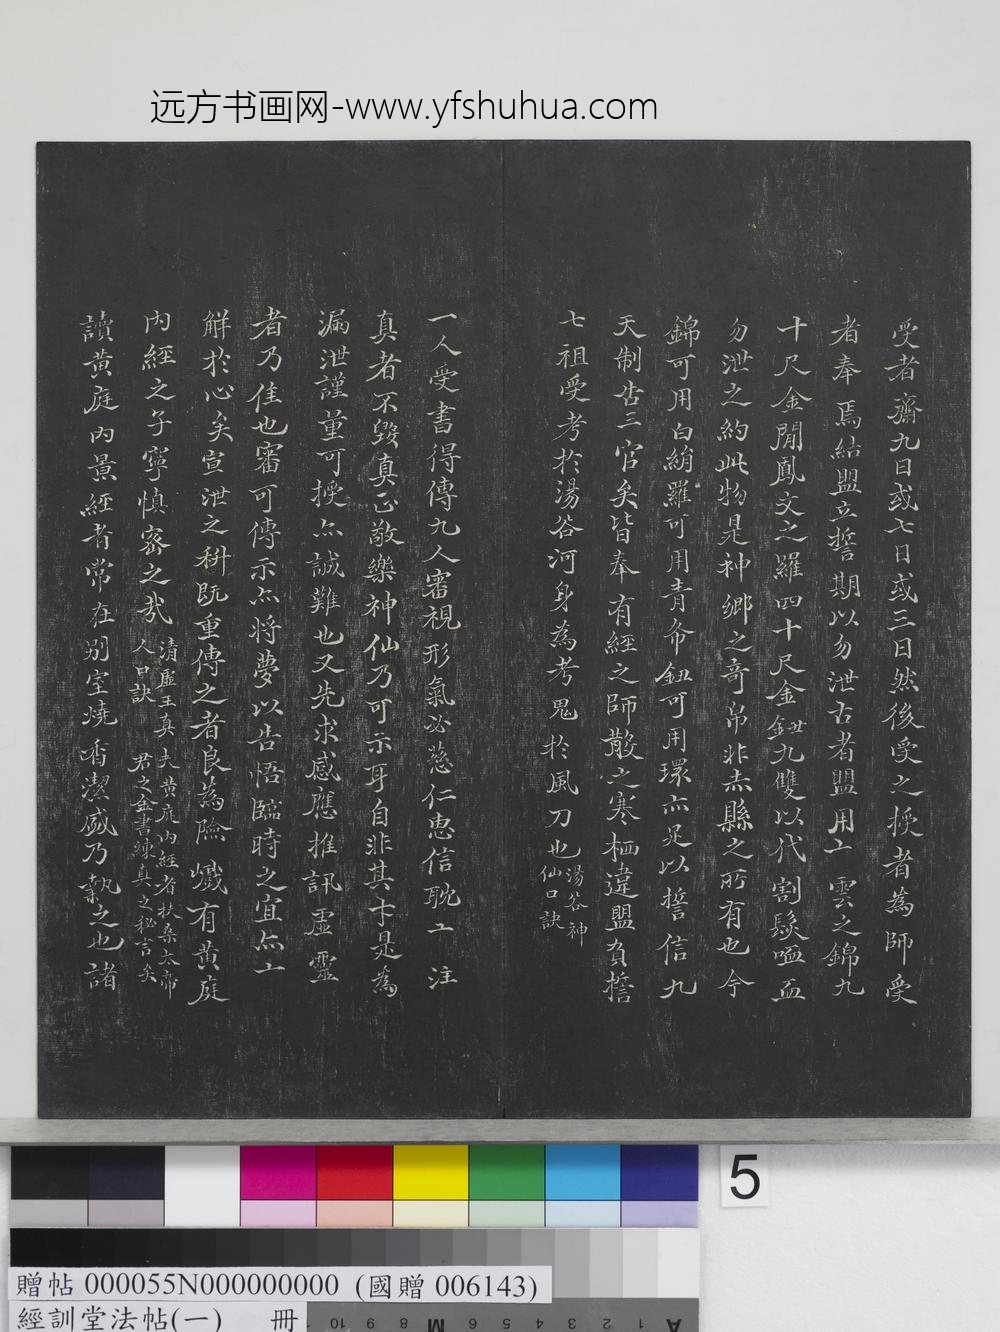 远方书画网-www.yfshuhua.com
受者齋九日或七日或三日然後受之授者為師受
者奉焉結盟立誓期以勿泄古者盟用玄雲之錦九
十尺金閒鳳文之羅四十尺金鈕九雙以代割髮歃血
勿泄之約此物是神鄉之奇帛非赤縣之所有也今
錦可用白絹羅可用青布鈕可用環亦足以誓信九
天制告三官矣皆奉有經之師散之寒栖違盟負誓
七祖受考於湯谷河身為考鬼於風刀也湯谷神仙口訣
一人受書得傳九人審視形氣必慈仁惠信耽玄注
真者不毀真正敬樂神仙乃可示耳自非其卞是為
漏泄謹量可授亦誠難也又先求感應推訊虛靈
者乃佳也審可傳示亦將夢以告悟臨時之宜亦玄
解於心矣宣泄之科既重傳之者良為險懺有黃庭
內經之子寧慎密之哉清虛王真人口訣 夫黃庭內經者扶桑太帝君之金書練真之秘言矣
讀黃庭內景經者常在別室燒香潔盛乃執之也諸
5
贈帖 000055N000000000 (國贈 006143)
經訓堂法帖(一) 冊
A 1 2 3 4 5 6 M 8 9 10